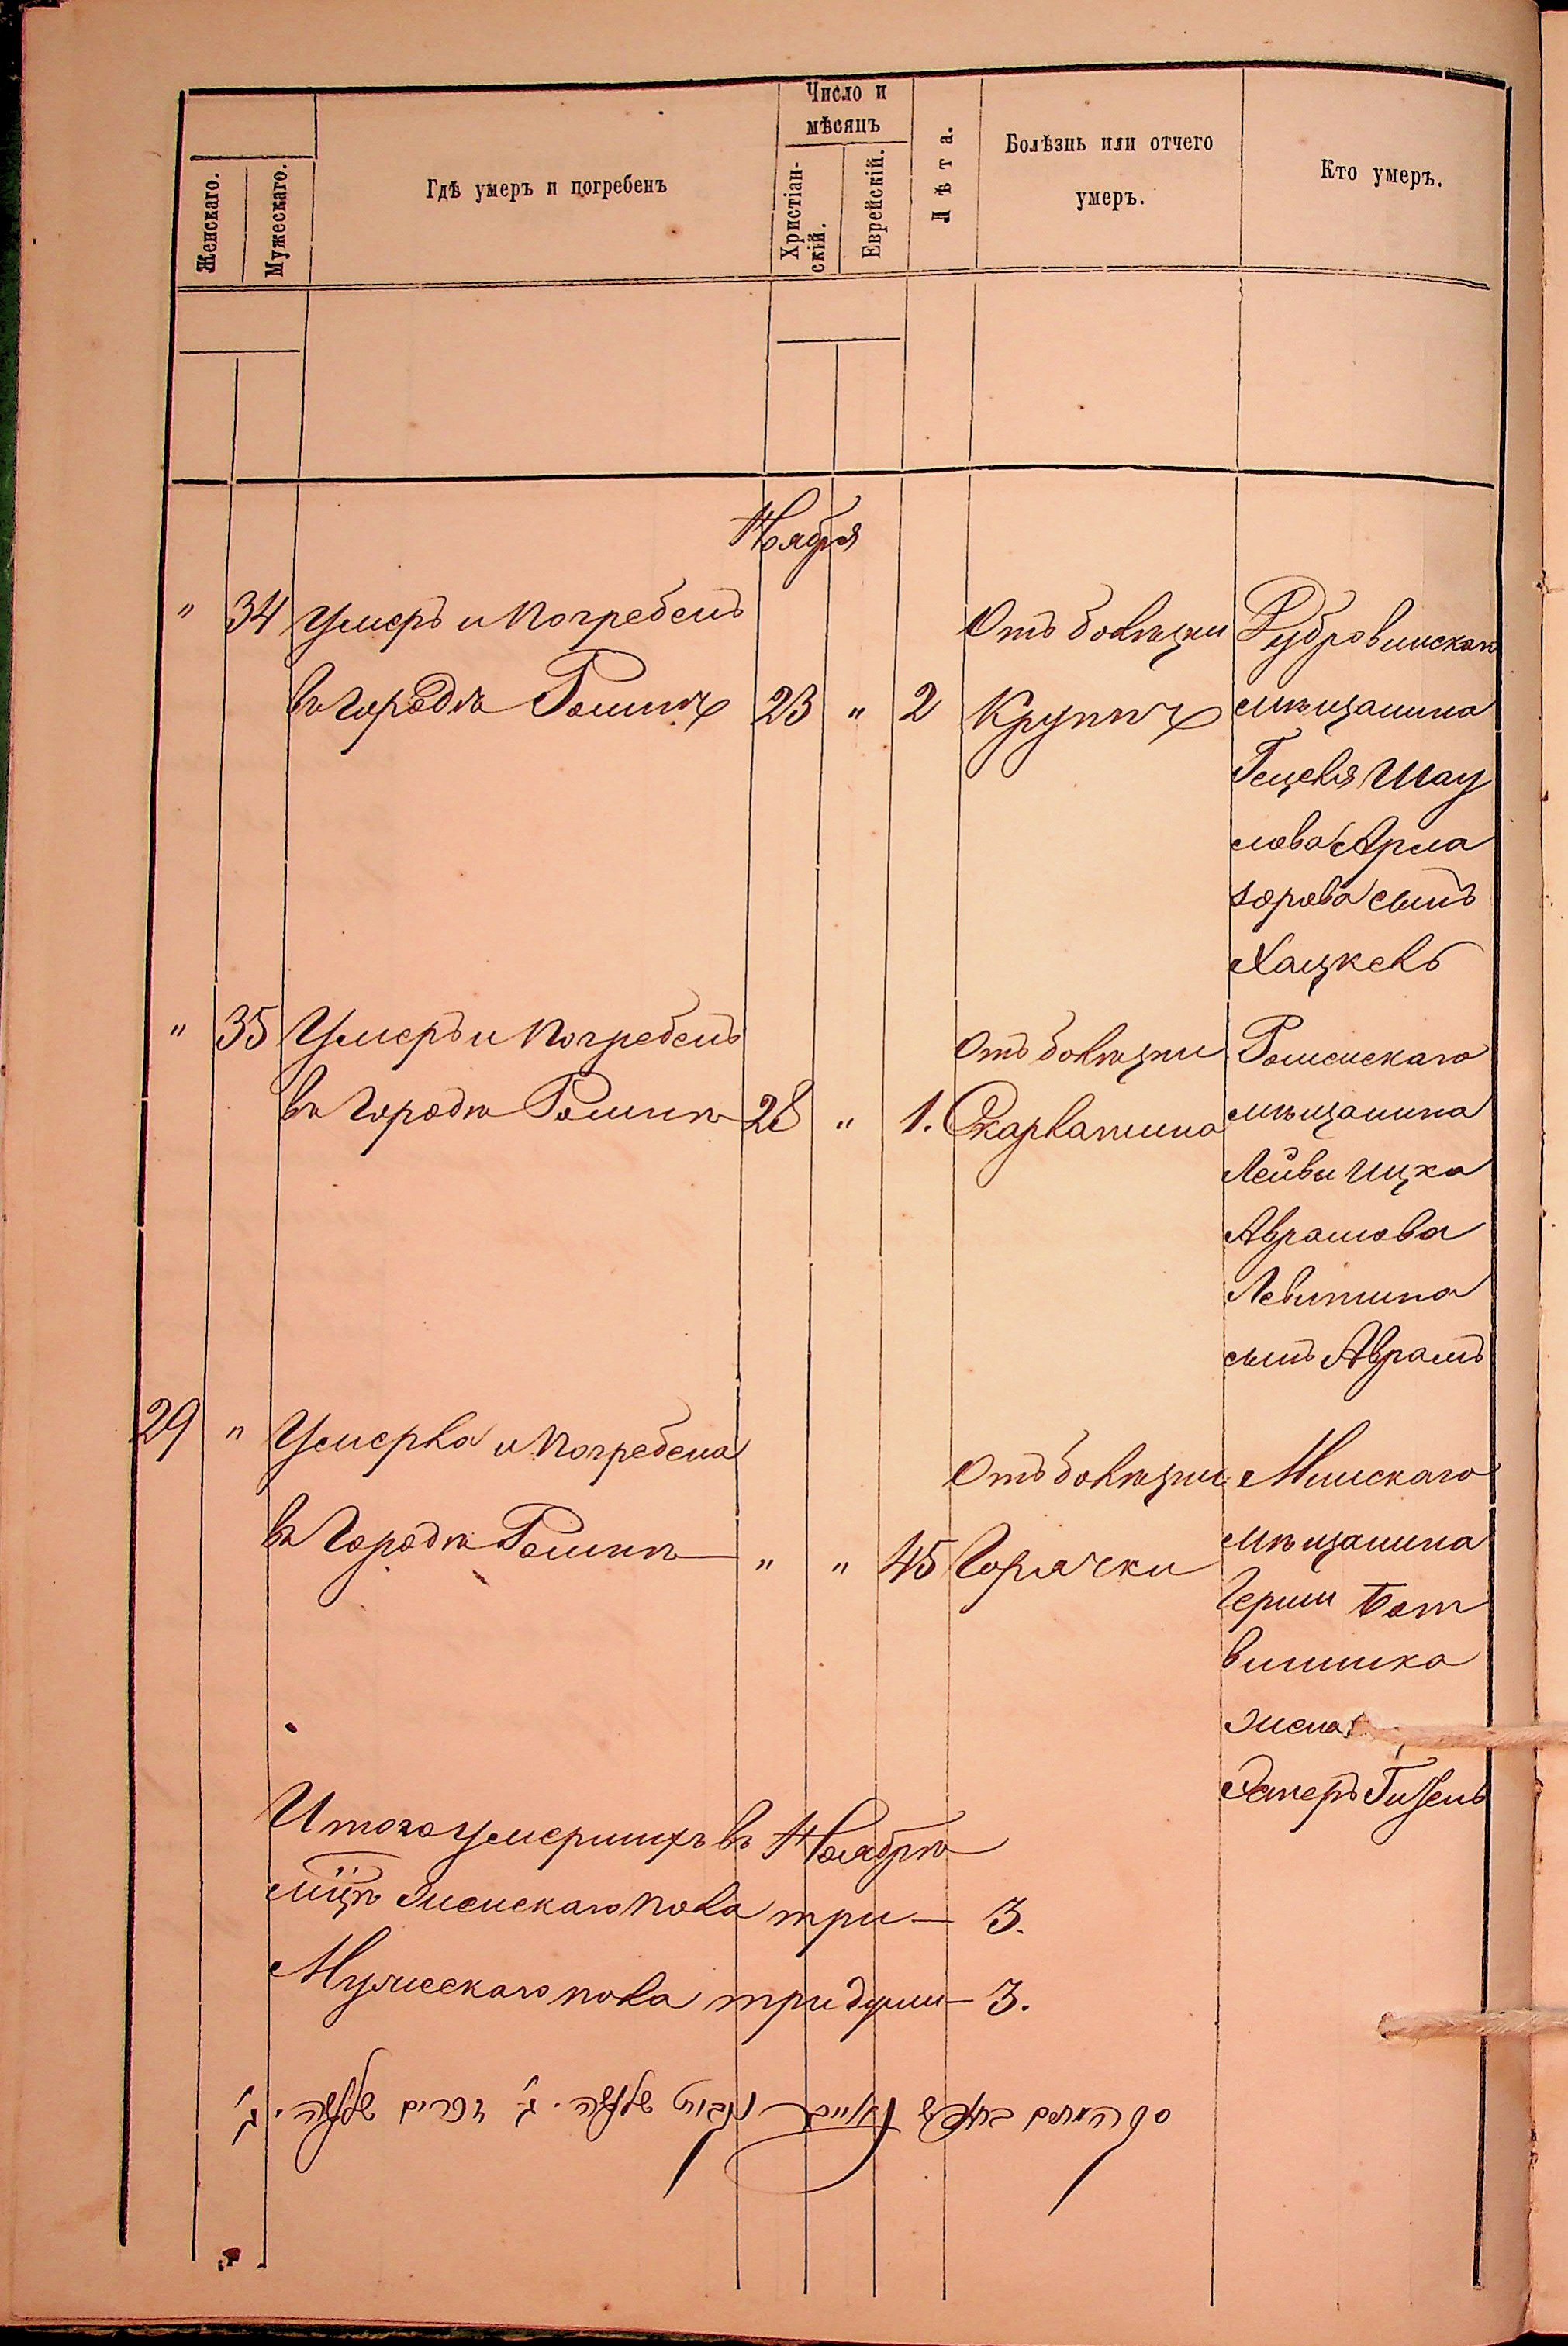 Женскаго.
Мужескаго.
Гдѣ умеръ и погребенъ
Число и
мѣсяцъ
Христіан-
скій.
Еврейскій.
Лѣта.
Болѣзнь или отчего
умеръ.
Кто умеръ.
Ноября
" 34 Умеръ и погребенъ
въ городѣ Ромнѣ 23 " 2
Отъ болѣзни
Крупѣ
Дубровинскаго
мѣщанина
Гецеля Шау
лова Арла
зорова сынъ
Хацкель
" 35 Умеръ и погребенъ
въ городѣ Ромнѣ 28 " 1.
Отъ болѣзни
Скарлатина
Роменскаго
мѣщанина
Лейвы Ицка
Аврамова
Левитина
сынъ Аврамъ
29 " Умерла и погребена
въ городѣ Ромнѣ " " 45
Отъ болѣзни
Горячки
Минскаго
мѣщанина
Герши Бот
винника
жена
Эстеръ Гизель
Итого умершихъ въ Ноябрѣ
мцѣ женскаго пола три — 3.
Мужескаго пола три души — 3.